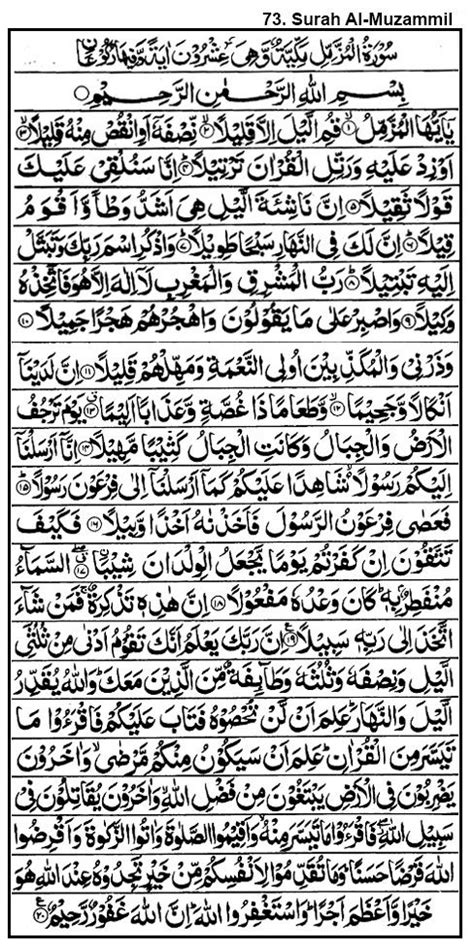 73. Surah Al-Muzammil
سُوْرَةُ الْمُزَّمِّلِ مَكِّيَّةٌ وَّهِيَ عِشْرُوْنَ اٰيَةً وَّفِيْهَا رُكُوْعَانِ
بِسْمِ اللّٰهِ الرَّحْمٰنِ الرَّحِيْمِ
يٰۤاَيُّهَا الْمُزَّمِّلُ ۙ﴿۱﴾ قُمِ الَّيْلَ اِلَّا قَلِيْلًا ۙ﴿۲﴾ نِّصْفَهٗۤ اَوِ انْقُصْ مِنْهُ قَلِيْلًا ۙ﴿۳﴾
اَوْ زِدْ عَلَيْهِ وَرَتِّلِ الْقُرْاٰنَ تَرْتِيْلًا ؕ﴿۴﴾ اِنَّا سَنُلْقِيْ عَلَيْكَ
قَوْلًا ثَقِيْلًا ﴿۵﴾ اِنَّ نَاشِئَةَ الَّيْلِ هِيَ اَشَدُّ وَطْاً وَّاَقْوَمُ
قِيْلًا ؕ﴿۶﴾ اِنَّ لَكَ فِي النَّهَارِ سَبْحًا طَوِيْلًا ؕ﴿۷﴾ وَاذْكُرِ اسْمَ رَبِّكَ وَتَبَتَّلْ
اِلَيْهِ تَبْتِيْلًا ؕ﴿۸﴾ رَبُّ الْمَشْرِقِ وَالْمَغْرِبِ لَاۤ اِلٰهَ اِلَّا هُوَ فَاتَّخِذْهُ
وَكِيْلًا ﴿۹﴾ وَاصْبِرْ عَلٰى مَا يَقُوْلُوْنَ وَاهْجُرْهُمْ هَجْرًا جَمِيْلًا ﴿۱۰﴾
وَذَرْنِيْ وَالْمُكَذِّبِيْنَ اُولِي النَّعْمَةِ وَمَهِّلْهُمْ قَلِيْلًا ﴿۱۱﴾ اِنَّ لَدَيْنَاۤ
اَنْكَالًا وَّجَحِيْمًا ۙ﴿۱۲﴾ وَّطَعَامًا ذَا غُصَّةٍ وَّعَذَابًا اَلِيْمًا ۗ﴿۱۳﴾ يَوْمَ تَرْجُفُ
الْاَرْضُ وَالْجِبَالُ وَكَانَتِ الْجِبَالُ كَثِيْبًا مَّهِيْلًا ﴿۱۴﴾ اِنَّاۤ اَرْسَلْنَاۤ
اِلَيْكُمْ رَسُوْلًا ۙ شَاهِدًا عَلَيْكُمْ كَمَاۤ اَرْسَلْنَاۤ اِلٰى فِرْعَوْنَ رَسُوْلًا ؕ﴿۱۵﴾
فَعَصٰى فِرْعَوْنُ الرَّسُوْلَ فَاَخَذْنٰهُ اَخْذًا وَّبِيْلًا ﴿۱۶﴾ فَكَيْفَ
تَتَّقُوْنَ اِنْ كَفَرْتُمْ يَوْمًا يَّجْعَلُ الْوِلْدَانَ شِيْبًا ۗ﴿۱۷﴾ السَّمَآءُ
مُنْفَطِرٌۢ بِهٖ ؕ كَانَ وَعْدُهٗ مَفْعُوْلًا ﴿۱۸﴾ اِنَّ هٰذِهٖ تَذْكِرَةٌ ۚ فَمَنْ شَآءَ
اتَّخَذَ اِلٰى رَبِّهٖ سَبِيْلًا ﴿۱۹﴾ اِنَّ رَبَّكَ يَعْلَمُ اَنَّكَ تَقُوْمُ اَدْنٰى مِنْ ثُلُثَيِ
الَّيْلِ وَنِصْفَهٗ وَثُلُثَهٗ وَطَآئِفَةٌ مِّنَ الَّذِيْنَ مَعَكَ ؕ وَاللّٰهُ يُقَدِّرُ
الَّيْلَ وَالنَّهَارَ ؕ عَلِمَ اَنْ لَّنْ تُحْصُوْهُ فَتَابَ عَلَيْكُمْ فَاقْرَءُوْا مَا
تَيَسَّرَ مِنَ الْقُرْاٰنِ ؕ عَلِمَ اَنْ سَيَكُوْنُ مِنْكُمْ مَّرْضٰى ۙ وَاٰخَرُوْنَ
يَضْرِبُوْنَ فِي الْاَرْضِ يَبْتَغُوْنَ مِنْ فَضْلِ اللّٰهِ ۙ وَاٰخَرُوْنَ يُقَاتِلُوْنَ فِيْ
سَبِيْلِ اللّٰهِ ۖ فَاقْرَءُوْا مَا تَيَسَّرَ مِنْهُ ۙ وَاَقِيْمُوا الصَّلٰوةَ وَاٰتُوا الزَّكٰوةَ وَاَقْرِضُوا
اللّٰهَ قَرْضًا حَسَنًا ؕ وَمَا تُقَدِّمُوْا لِاَنْفُسِكُمْ مِّنْ خَيْرٍ تَجِدُوْهُ عِنْدَ اللّٰهِ هُوَ
خَيْرًا وَّاَعْظَمَ اَجْرًا ؕ وَاسْتَغْفِرُوا اللّٰهَ ؕ اِنَّ اللّٰهَ غَفُوْرٌ رَّحِيْمٌ ﴿۲۰﴾